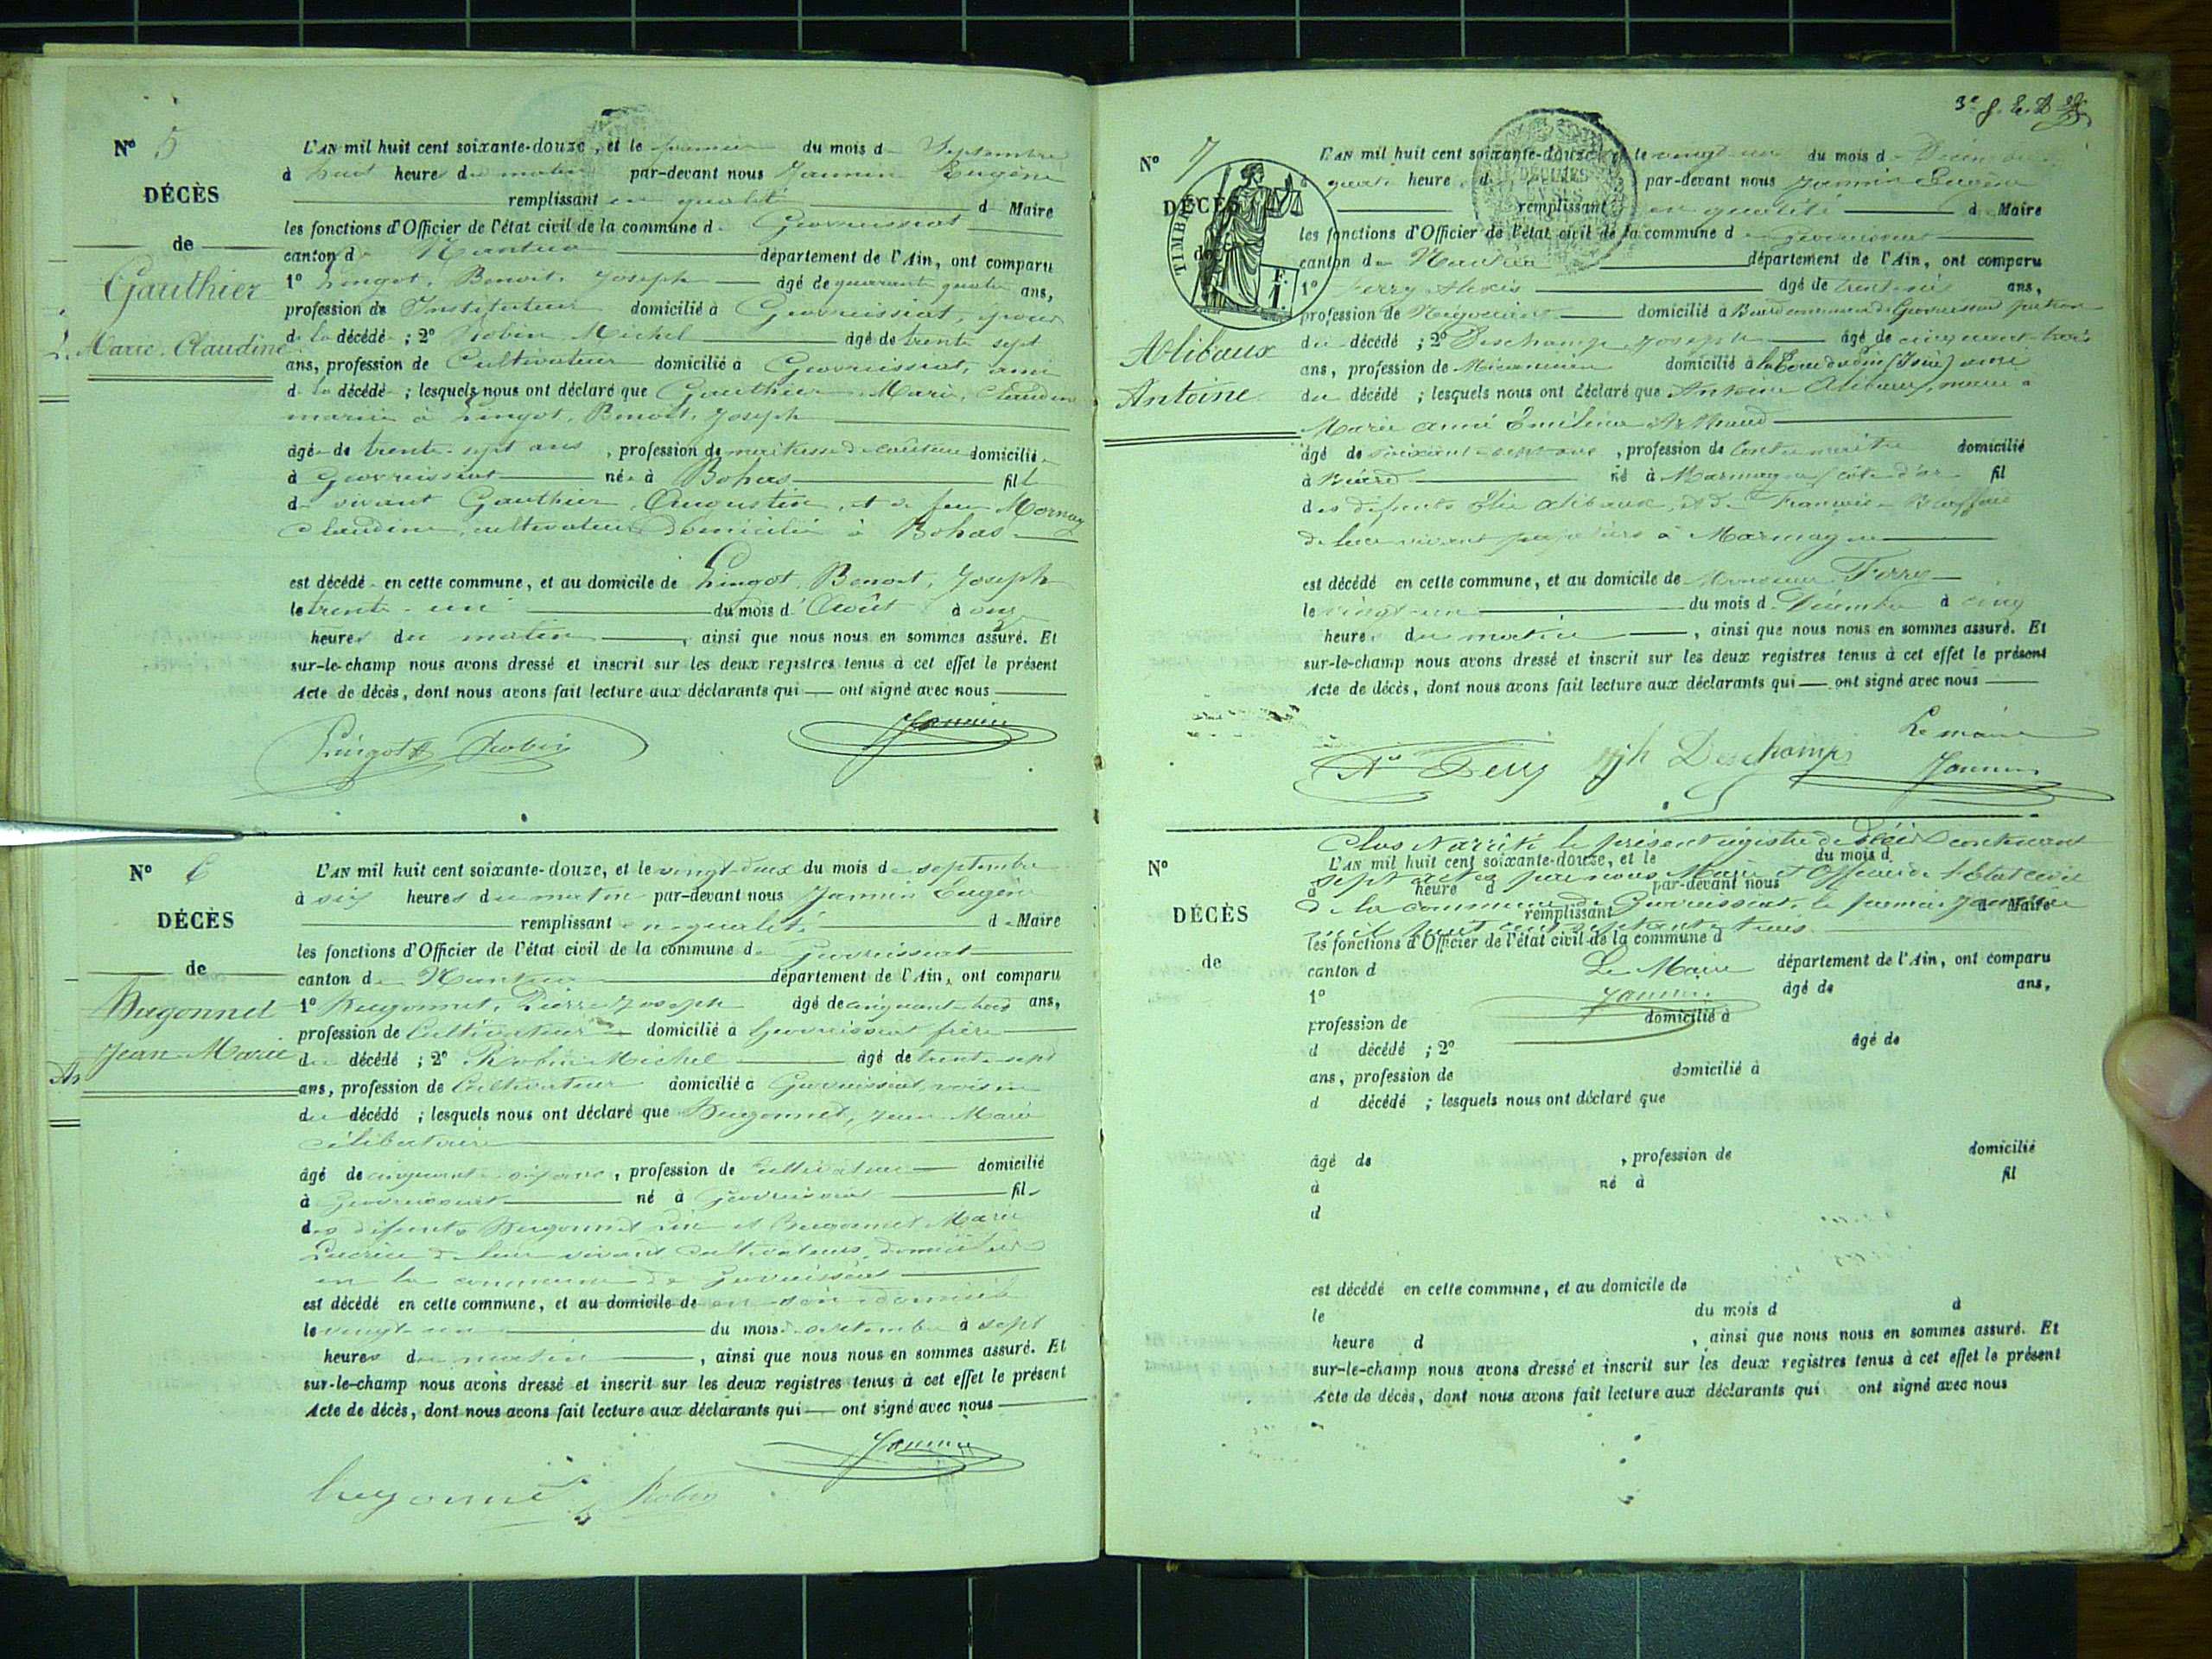 N° 5
DÉCÈS
de
Gauthier
Marie Claudine
L'AN mil huit cent soixante-douze, et le premier du mois de Septembre
à huit heures du matin par-devant nous Jannin Eugène
remplissant en qualité de Maire
les fonctions d'Officier de l'état civil de la commune de Gevreissiat
canton de Nantua département de l'Ain, ont comparu
1° Lingot, Benoit, Joseph âgé de quarante quatre ans,
profession de Instituteur domicilié à Gevreissiat, époux
de la décédée ; 2° Robin Michel âgé de trente sept
ans, profession de Cultivateur domicilié à Gevreissiat, ami
de la décédée ; lesquels nous ont déclaré que Gauthier Marie, Claudine
mariée à Lingot, Benoit, Joseph
âgée de trente-sept ans, profession de maitresse de couture domiciliée
à Gevreissiat née à Bohas fille
de vivant Gauthier, Augustin, et de feu Mornay
Claudine, cultivateur domicilié à Bohas
est décédée en cette commune, et au domicile de Lingot, Benoit, Joseph
le trente-un du mois d'Août à onze
heures du matin, ainsi que nous nous en sommes assuré. Et
sur-le-champ nous avons dressé et inscrit sur les deux registres tenus à cet effet le présent
Acte de décès, dont nous avons fait lecture aux déclarants qui ont signé avec nous
Lingot Robin Jannin
N° 6
DÉCÈS
de
Hugonnet
Jean-Marie
L'AN mil huit cent soixante-douze, et le vingt-deux du mois de septembre
à six heures du matin par-devant nous Jannin Eugène
remplissant en qualité de Maire
les fonctions d'Officier de l'état civil de la commune de Gevreissiat
canton de Nantua département de l'Ain, ont comparu
1° Hugonnet, Pierre Joseph âgé de cinquante-trois ans,
profession de Cultivateur domicilié à Gevreissiat frère
du décédé ; 2° Robin Michel âgé de trente-sept
ans, profession de Cultivateur domicilié à Gevreissiat, voisin
du décédé ; lesquels nous ont déclaré que Hugonnet, Jean-Marie
célibataire
âgé de cinquante-six ans, profession de Cultivateur domicilié
à Gevreissiat né à Gevreissiat fils
des défunts Hugonnet et Hugonnet Marie
de leur vivant Cultivateurs, domiciliés
en la commune de Gevreissiat
est décédé en cette commune, et au domicile de en son domicile
le vingt-un du mois de septembre à sept
heures du matin, ainsi que nous nous en sommes assuré. Et
sur-le-champ nous avons dressé et inscrit sur les deux registres tenus à cet effet le présent
Acte de décès, dont nous avons fait lecture aux déclarants qui ont signé avec nous
Jannin
hugonnet Robin
N° 7
DÉCÈS
de
TIMBRE
F.
1.
Alibaux
Antoine
L'AN mil huit cent soixante-douze et le vingt-un du mois de Décembre
à quatre heures du par-devant nous Jannin Eugène
remplissant en qualité de Maire
les fonctions d'Officier de l'état civil de la commune de Gevreissiat
canton de Nantua département de l'Ain, ont comparu
1° Ferry Alexis âgé de trente-six ans,
profession de Négociant domicilié à commune de Gevreissiat patron
du décédé ; 2° Deschamps Joseph âgé de cinquante-trois
ans, profession de Mécanicien domicilié à la Tour du Pin (Isère) ami
du décédé ; lesquels nous ont déclaré que Antoine Alibaux, marié à
Marie Anne Emélina Arthaud
âgé de soixante-sept ans, profession de Contremaître domicilié
à né à Marmagne (côte d'or fil
des défunts Elie Alibaux, et de Françoise
de leur vivant à Marmagne
est décédé en cette commune, et au domicile de Monsieur Ferry
le vingt-un du mois de Décembre à cinq
heures du matin, ainsi que nous nous en sommes assuré. Et
sur-le-champ nous avons dressé et inscrit sur les deux registres tenus à cet effet le présent
Acte de décès, dont nous avons fait lecture aux déclarants qui ont signé avec nous
Le maire
Ferry jph Deschamps Jannin
Clos & arrêté le présent registre de Décès contenant
sept actes par nous Maire et Officier de l'Etat civil
de la commune de Gevreissiat, le premier Janvier
mil huit cent septante-trois.
Le Maire
Jannin
N°
DÉCÈS
de
L'AN mil huit cent soixante-douze, et le du mois d
à heure d par-devant nous
remplissant d Maire
les fonctions d'Officier de l'état civil de la commune d
canton d département de l'Ain, ont comparu
1° âgé de ans,
profession de domicilié à
d décédé ; 2° âgé de
ans, profession de domicilié à
d décédé ; lesquels nous ont déclaré que
âgé de , profession de domicilié
à né à fil
d
est décédé en cette commune, et au domicile de
le du mois d à
heure d , ainsi que nous nous en sommes assuré. Et
sur-le-champ nous avons dressé et inscrit sur les deux registres tenus à cet effet le présent
Acte de décès, dont nous avons fait lecture aux déclarants qui ont signé avec nous